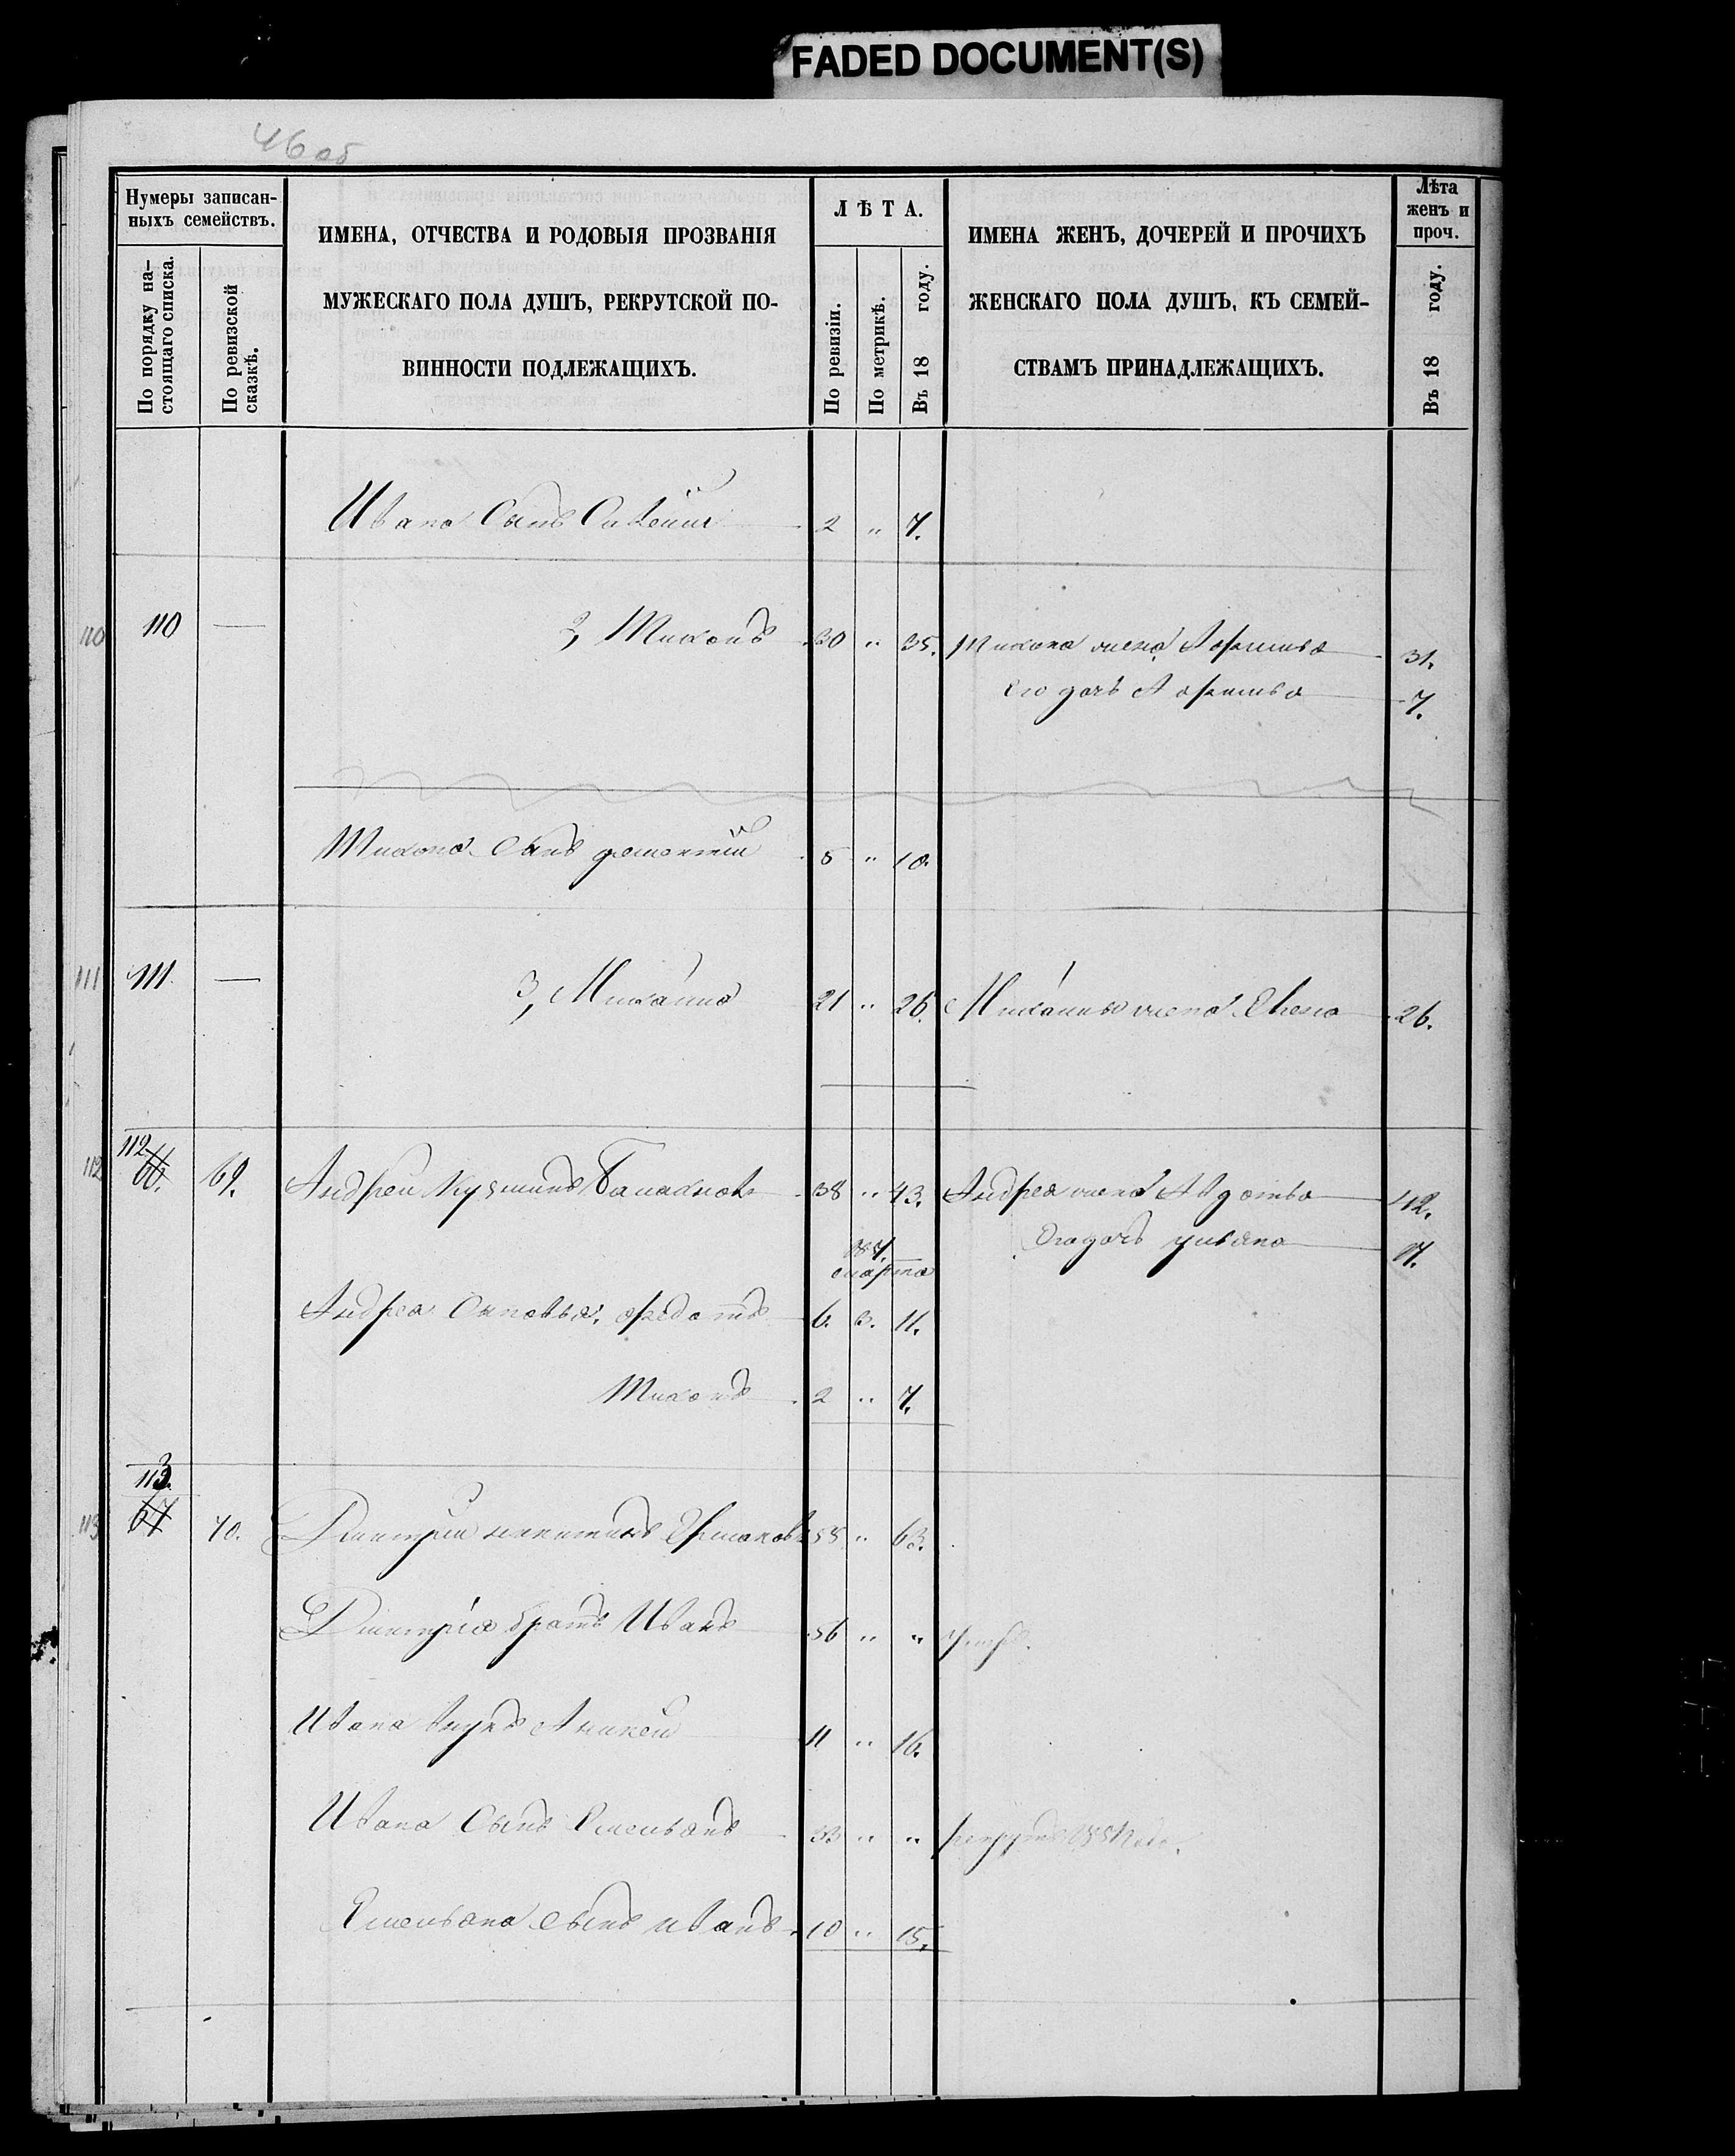 FADED DOCUMENT(S)
46 об
Нумеры записан-
ныхъ семействъ.
По порядку на-
стоящаго списка.
По ревизской
сказкѣ.
ИМЕНА, ОТЧЕСТВА И РОДОВЫЯ ПРОЗВАНІЯ
МУЖЕСКАГО ПОЛА ДУШЪ, РЕКРУТСКОЙ ПО-
ВИННОСТИ ПОДЛЕЖАЩИХЪ.
ЛѢТА.
По ревизіи.
По метрикѣ.
Въ 18 году.
ИМЕНА ЖЕНЪ, ДОЧЕРЕЙ И ПРОЧИХЪ
ЖЕНСКАГО ПОЛА ДУШЪ, КЪ СЕМЕЙ-
СТВАМЪ ПРИНАДЛЕЖАЩИХЪ.
Лѣта
женъ и
проч.
Въ 18 году.
Ивана Сынъ 2 " 7.
110 110 — 2, Тихонъ 30 " 35. Тихона жена 31.
Его дочь 7.
Тихона Сынъ дементій 5 " 10.
111 111. — 3, Михаила 21 " 26. Михаила жена Елена 26.
112
112 66. 69. Андрей Кузминъ 38 " 43. Андрея жена Авдотья 42.
Его дочь ульяна 17.
марта
Андрея Сыновья: федотъ 6. 3. 11.
Тихонъ 2 " 7.
113.
113 67 70. Дмитрій никитинъ Ермаковъ 58 " 63.
Дмитрія братъ Иванъ 56 " " умеръ.
Ивана внукъ Аникей 11 " 16.
Ивана Сынъ Емельянъ 33 " " рекрутъ
Емельяна сынъ иванъ 10 " 15.